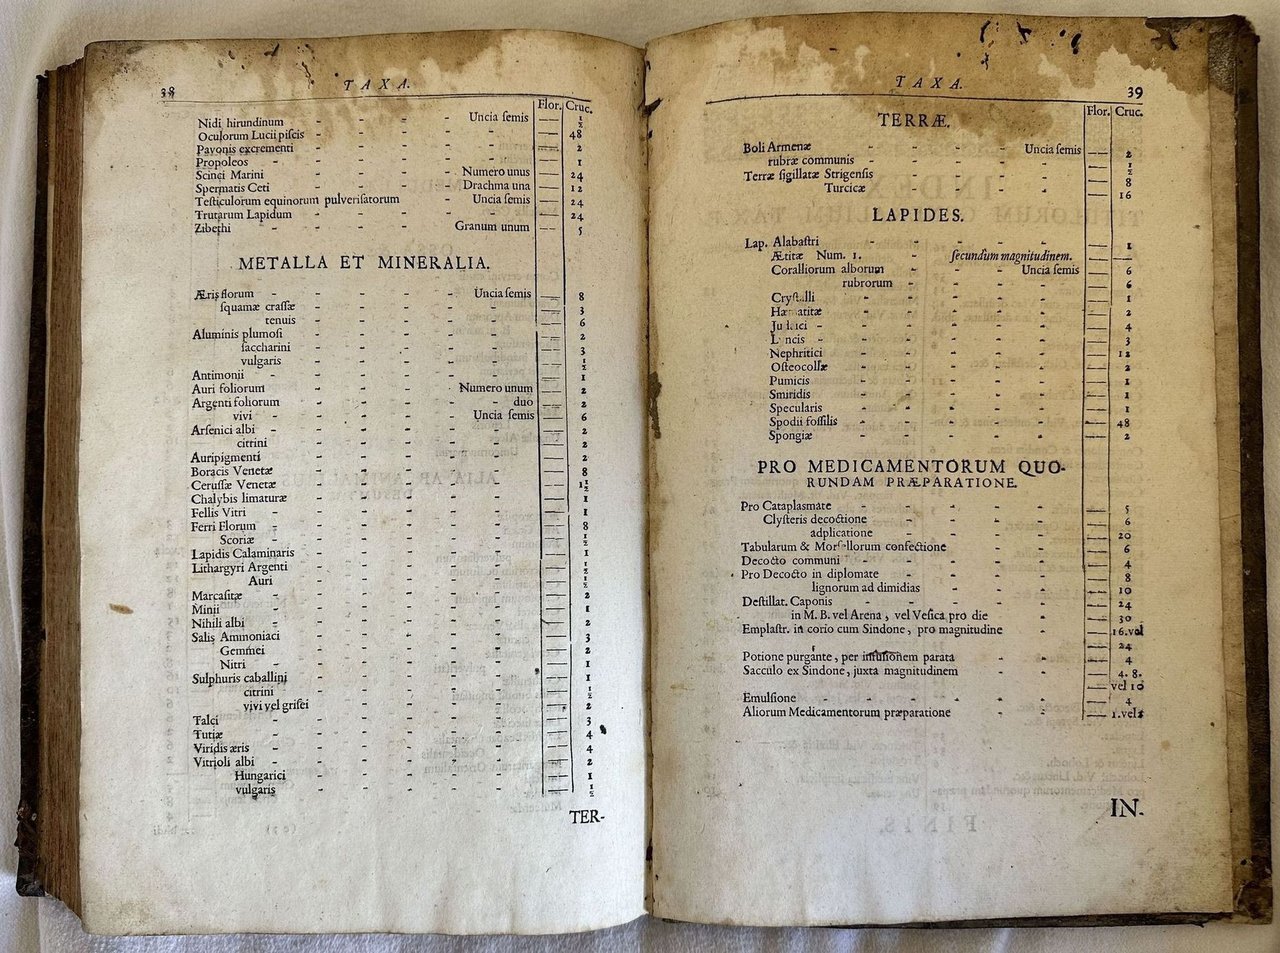 38
TAXA.
Flor. Cruc.
Nidi hirundinum - - - - Uncia ſemis — ½
Oculorum Lucii piſcis - - - - - — 48
Pavonis excrementi - - - - - — 2
Propoleos - - - - - — 1
Scinci Marini - - - - Numero unus — 24
Spermatis Ceti - - - - Drachma una — 12
Teſticulorum equinorum pulveriſatorum - - Uncia ſemis — 24
Trutarum Lapidum - - - - - — 24
Zibethi - - - - Granum unum — 5
METALLA ET MINERALIA.
Æris florum - - - - Uncia ſemis — 8
ſquamæ craſſæ - - - - - — 3
tenuis - - - - - — 6
Aluminis plumoſi - - - - - — 2
ſaccharini - - - - - — 3
vulgaris - - - - - — ½
Antimonii - - - - - — 1
Auri foliorum - - - - Numero unum — 2
Argenti foliorum - - - - duo — 2
vivi - - - - Uncia ſemis — 6
Arſenici albi - - - - - — 2
citrini - - - - - — 2
Auripigmenti - - - - - — 2
Boracis Venetæ - - - - - — 8
Ceruſſæ Venetæ - - - - - — 1½
Chalybis limaturæ - - - - - — 1
Fellis Vitri - - - - - — 1
Ferri Florum - - - - - — 8
Scoriæ - - - - - — ½
Lapidis Calaminaris - - - - - — 1
Lithargyri Argenti - - - - - — ½
Auri - - - - - — ½
Marcaſitæ - - - - - — 2
Minii - - - - - — 1
Nihili albi - - - - - — 2
Salis Ammoniaci - - - - - — 3
Gemmei - - - - - — 2
Nitri - - - - - — 1
Sulphuris caballini - - - - - — 1
citrini - - - - - — ½
vivi vel griſei - - - - - — 2
Talci - - - - - — 3
Tutiæ - - - - - — 4
Viridis æris - - - - - — 4
Vitrioli albi - - - - - — 2
Hungarici - - - - - — 1
vulgaris - - - - - — ½
TER-
TAXA.
39
Flor. Cruc.
TERRÆ.
Boli Armenæ - - - - Uncia ſemis — 2
rubræ communis - - - - - — ½
Terræ ſigillatæ Strigenſis - - - - — 8
Turcicæ - - - - - — 16
LAPIDES.
Lap. Alabaſtri - - - - - — 1
Ætitæ Num. 1. - ſecundum magnitudinem. —
Coralliorum alborum - - - Uncia ſemis — 6
rubrorum - - - - — 6
Cryſtalli - - - - - — 1
Hæmatitæ - - - - - — 2
Judaici - - - - - — 4
Lyncis - - - - - — 3
Nephritici - - - - - — 12
Oſteocollæ - - - - - — 2
Pumicis - - - - - — 1
Smiridis - - - - - — 1
Specularis - - - - - — 1
Spodii foſſilis - - - - - — 48
Spongiæ - - - - - — 2
PRO MEDICAMENTORUM QUO-
RUNDAM PRÆPARATIONE.
Pro Cataplasmate - - - - - — 5
Clyſteris decoctione - - - - — 6
adplicatione - - - - — 20
Tabularum & Morſellorum confectione - - - — 6
Decocto communi - - - - - — 4
Pro Decocto in diplomate - - - - — 8
lignorum ad dimidias - - - — 10
Deſtillat. Caponis - - - - - — 24
in M. B. vel Arena, vel Veſica pro die - — 30
Emplaſtr. in corio cum Sindone, pro magnitudine - — 16. vel
— 24
Potione purgante, per infuſionem parata - - — 4
Sacculo ex Sindone, juxta magnitudinem - - — 4. 8.
— vel 10
Emulſione - - - - - — 4
Aliorum Medicamentorum præparatione - - — 1. vel 2
IN-